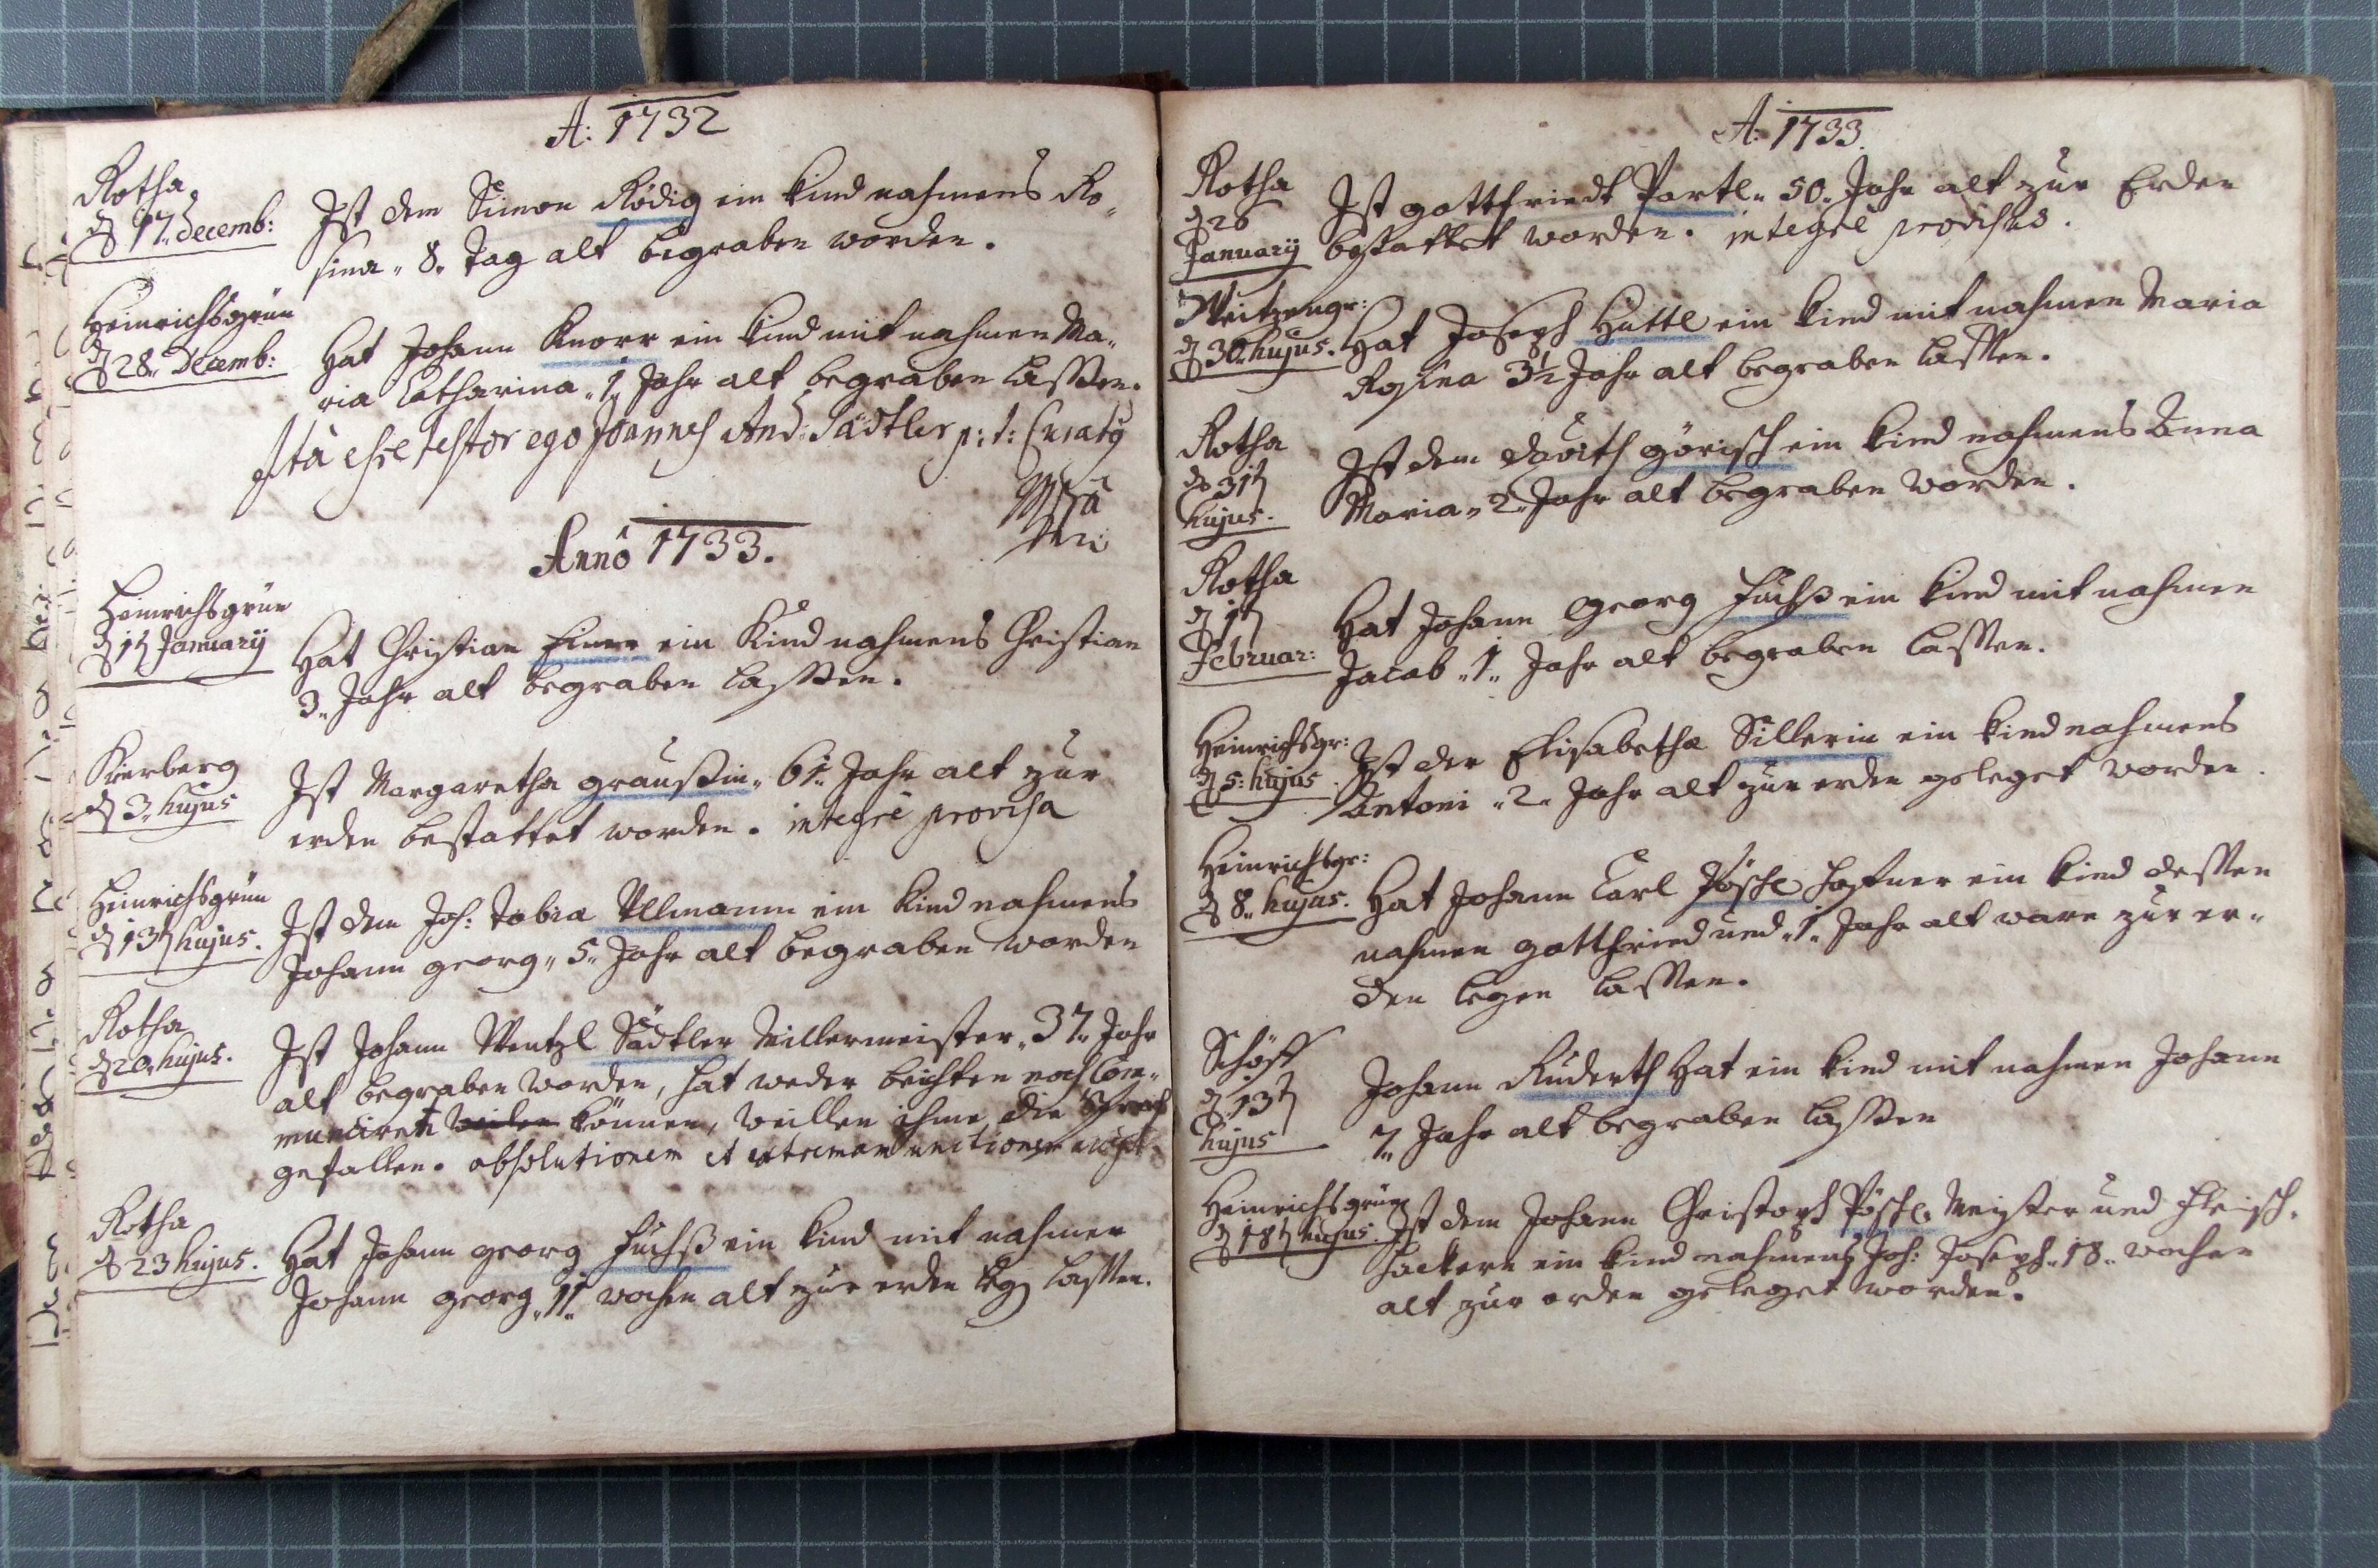 A: 1732
Rotha
d 17. Decemb:
Ist dem Simon Rödig ein Kind nahmens Ro-
sina „ 8. Tag alt begraben worden.
Heinrichsgrün
d 28. Decemb:
Hat Johann Knorr ein Kind mit nahmen Ma-
ria Catharina „1„ Jahr alt begraben lassen.
Ità esse testor ego Joannes And: Sädtler p: t: Curatq
Mpa
Anno 1733.
Heinrichsgrün
d 1t January
Hat Christian ein Kind nahmens Christian
3„ Jahr alt begraben lassen.
Kierberg
d 3„ hujus
Ist Margaretha graussin „ 61„ Jahr alt zur
erden bestattet worden. integrè provisa
Heinrichsgrün
d 13t hujus.
Ist dem Joh: Tobia Ullmann ein Kind nahmens
Johann georg „ 5„ Jahr alt begraben worden
Rotha
d 20„ hujus.
Ist Johann Wentzl Sädtler Millermeister „ 37„ Jahr
alt begraben worden, hat weder beichten noch Com-
können, weillen ihme die Sprach
gefallen. absolutionem et extremam unctionem
Rotha
d 23 hujus.
Hat Johann georg Fuchß ein Kind mit nahmen
Johann georg „11„ wochen alt zur erden leg lassen.
A: 1733.
Rotha
d 26
January
Ist gottfriedt Partl „ 50„ Jahr alt zur Erden
bestattet worden. integrè provisus.
Weitzengr:
d 30. hujus.
Hat Joseph Hüttl ein Kind mit nahmen Maria
Rosina 3½ Jahr alt begraben lassen.
Rotha
d 31t
hujus.
Ist dem Davith görisch ein Kind nahmens Anna
Maria „ 2„ Jahr alt begraben worden.
Rotha
d 1t
Februar:
Hat Johann Georg Fuchß ein Kind mit nahmen
Jacob „1„ Jahr alt begraben lassen.
Heinrichsgr:
d 5: hujus.
Ist der Elisabetha Sillerin ein Kind nahmens
Antoni „2„ Jahr alt zur erden geleget worden.
Heinrichsgr:
d 8„ hujus.
Hat Johann Carl Pöschl Hafner ein Kind dessen
nahmen gottfried und „1„ Jahr alt ware zur er-
den legen lassen.
Schöff
d 13t
hujus
Johann Ruderth Hat ein Kind mit nahmen Johann
7„ Jahr alt begraben lassen
Heinrichsgrün
d 18t hujus.
Ist dem Johann Christoph Pöschl Meister und Fleisch-
hackern ein Kind nahmens Joh: Joseph „18„ wochen
alt zur erden geleget worden.